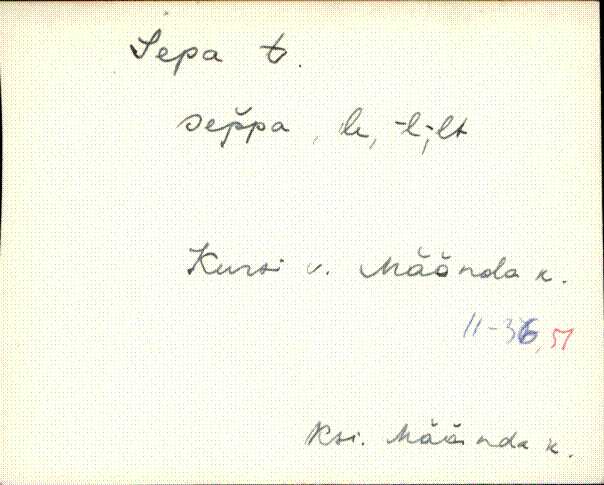 Sepa t.
sep̌pa, le, -l, -lt
Kursi v. Mäända k.
11-36, 51
Ksi. Mäända k.